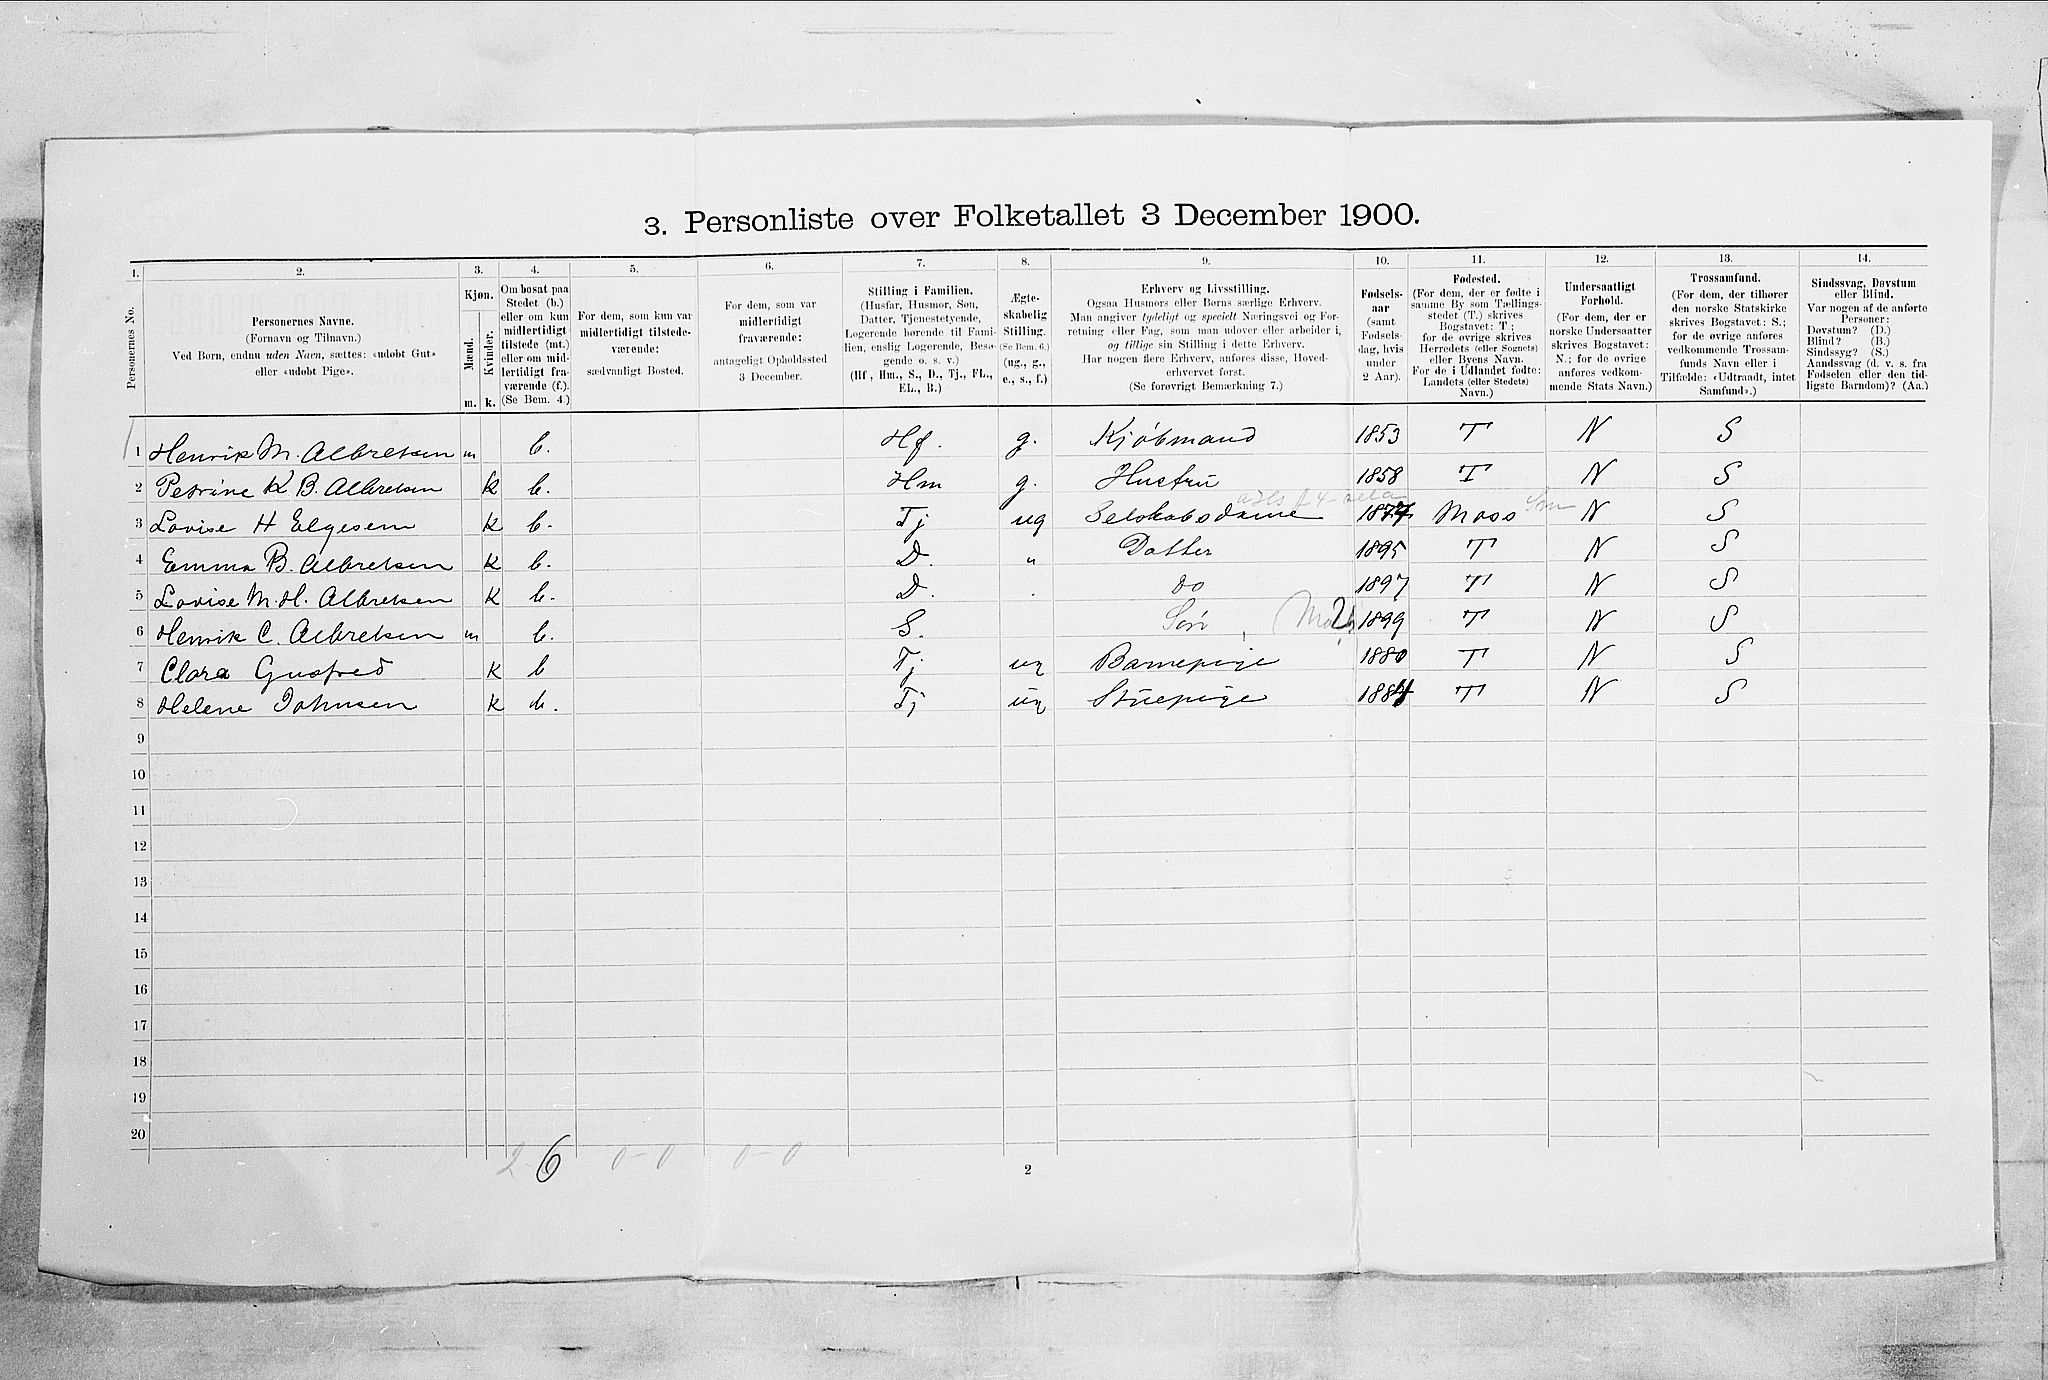 3. Personliste over Folketallet 3 December 1900.
1. 2. 3. 4. 5. 6. 7. 8. 9. 10. 11. 12. 13. 14.
Personernes No.
Personernes Navne.
(Fornavn og Tilnavn.)
Ved Børn, endnu uden Navn, sættes: «udøbt Gut»
eller «udøbt Pige».
Kjøn.
Mænd.
Kvinder.
m. k.
Om bosat paa
Stedet (b.)
eller om kun
midlertidigt
tilstede (mt.)
eller om mid-
lertidigt fra-
værende (f.).
(Se Bem. 4.)
For dem, som kun var
midlertidigt tilstede-
værende:
sædvanligt Bosted.
For dem, som var
midlertidigt
fraværende:
antageligt Opholdssted
3 December.
Stilling i Familien.
(Husfar, Husmor, Søn,
Datter, Tjenestetyende,
Logerende hørende til Fami-
lien, enslig Logerende, Besø-
gende o. s. v.)
(Hf., Hm., S., D., Tj., FL.,
EL., B.)
Ægte-
skabelig
Stilling.
(Se Bem. 6.)
(ug., g.,
e., s., f.)
Erhverv og Livsstilling.
Ogsaa Husmors eller Børns særlige Erhverv.
Man angiver tydeligt og specielt Næringsvei og For-
retning eller Fag, som man udøver eller arbeider i,
og tillige sin Stilling i dette Erhverv.
Har nogen flere Erhverv, anføres disse, Hoved-
erhvervet først.
(Se forøvrigt Bemærkning 7.)
Fødsels-
aar
(samt
Fødsels-
dag, hvis
under
2 Aar).
Fødested.
(For dem, der er fødte i
samme By som Tællings-
stedet (T.) skrives
Bogstavet: T.;
for de øvrige skrives
Herredets (eller Sognets)
eller Byens Navn.
For de i Udlandet fødte:
Landets (eller Stedets)
Navn.)
Undersaatligt
Forhold.
(For dem, der er
norske Undersaatter
skrives Bogstavet:
N.; for de øvrige
anføres vedkom-
mende Stats Navn.)
Trossamfund.
(For dem, der tilhører
den norske Statskirke
skrives Bogstavet: S.;
for de øvrige anføres
vedkommende Trossam-
funds Navn eller i
Tilfælde: «Udtraadt, intet
Samfund».)
Sindssvag, Døvstum
eller Blind.
Var nogen af de anførte
Personer:
Døvstum? (D.)
Blind? (B.)
Sindssyg? (S.)
Aandssvag (d. v. s. fra
Fødselen eller den tid-
ligste Barndom)? (Aa.)
1 Henrik M. Albretsen m b. Hf. g. Kjøbmand 1853 T N S
2 Petrine K B. Albretsen k b. Hm g. Hustru 1858 T N S
3 Lovise H Elgesem k b. Tj ug Selskabsdame 1877 Moss N S
4 Emma B. Albretsen k b. D. " Datter 1895 T N S
5 Lovise M. H. Albretsen k b. D. . do 1897 T N S
6 Henrik C. Albretsen m b. S. Søn 1899 T N S
7 Clara Gusfred k b Tj ug Barnepige 1880 T N S
8 Helene Johnsen k b. Tj ug Stuepige 1884 T N S
9
10
11
12
13
14
15
16
17
18
19
20
2 6 0-0 0-0
2